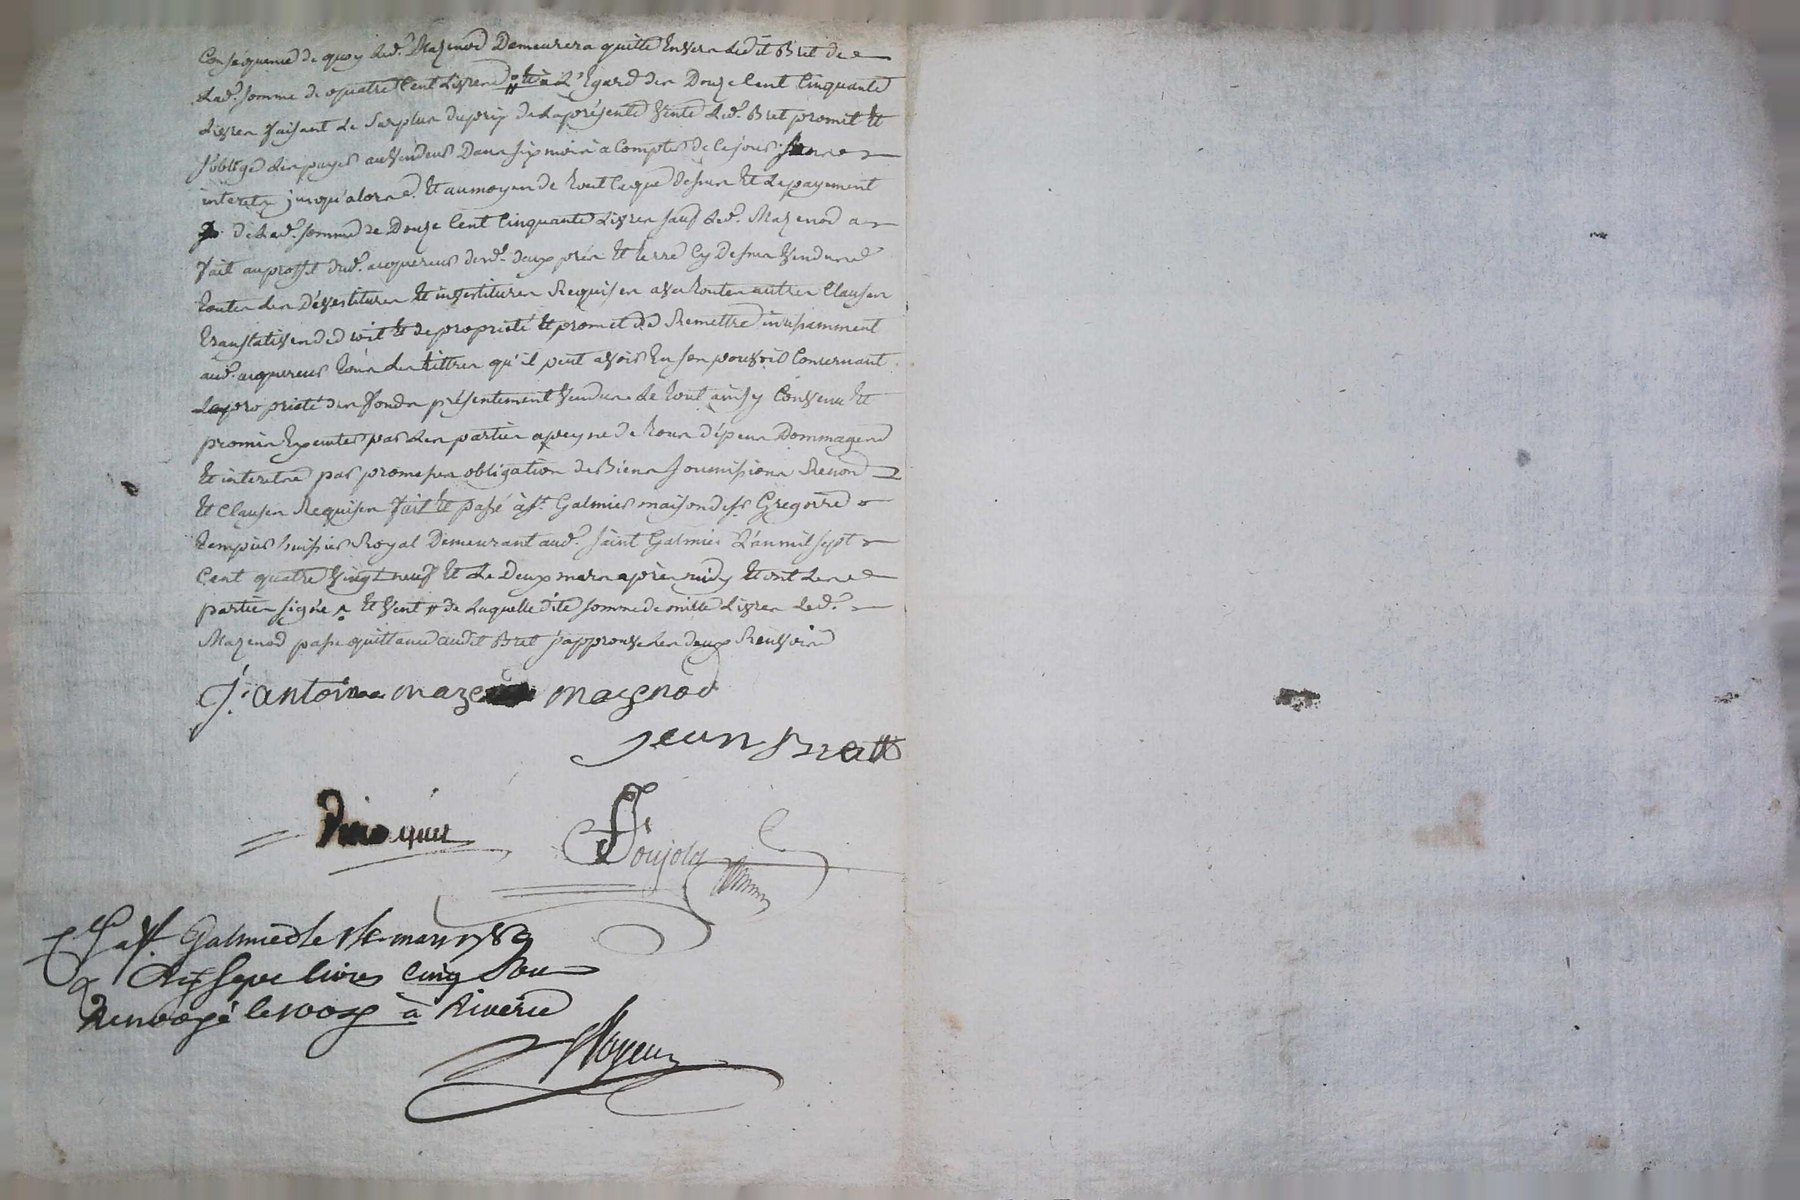 Conséquence de quoy led. Mazenod Demeurera quitte Envers ledit Bret de
Lad. somme de quatre Cent Livres et à L'Egard des Douze Cent Cinquante
Livres faisant Le Surplus du prix de La présente Vente Led. Bret promet Et
s'oblige Les payer au Vendeur Dans six mois à Compter de Ce jour sans
interets jusqu'alors. Et au moyen de tout Ce que dessus Et Le payement
de Lad. somme de Douze Cent Cinquante Livres sauf Led. Mazenod a
fait au proffit dud. acquereur desd. deux prés Et terre Cy Dessus Vendus
toutes Les Dévestitures Et investitures Requises avec toutes autres Clauses
translatives de droit Et de propriété Et promet de Remettre incessamment
aud. acquereur tous Les tittres qu'il peut avoir En son pouvoir Concernant
La propriété des fonds présentement Vendus Le tout ainsy Convenu Et
promis Executer par Les parties a peyne de tous dépens Dommages
Et interets par promesses obligation de Biens soumissions Renon
Et Clauses Requises fait Et passé à St. Galmier maison de Sr Gregoire
tempier huissier Royal Demeurant aud. Saint Galmier L'an mil sept
Cent quatre Vingt neuf Et Le Deux mars après midy Et ont Les
parties signé Et Vent de Laquelle dite somme de mille Livres Led.
Mazenod passe quittance audit Bret j'approuve Les deux Renvoirs
J. antoine maze mazenod
jean Brett
Poujola
à St. Galmier le mars 1789
dix sept livres cinq Sous
Renvoyé le 100e à Riverie